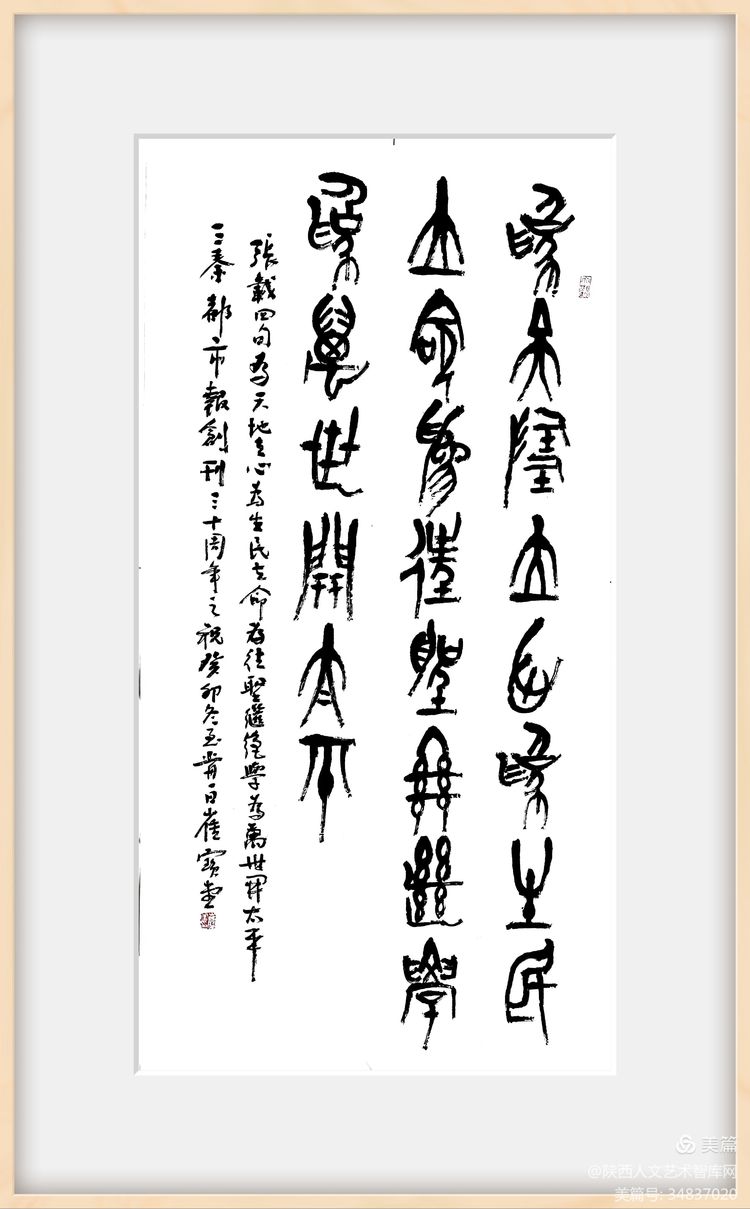 為天地立心為生民
立命為往聖繼絕學
為萬世開太平
張載四句為天地立心為生民立命為往聖繼絕學為萬世開太平
三秦都市報創刊三十周年之祝癸卯冬至崔寶
美篇
@陕西人文艺术智库网
美篇号: 34837020